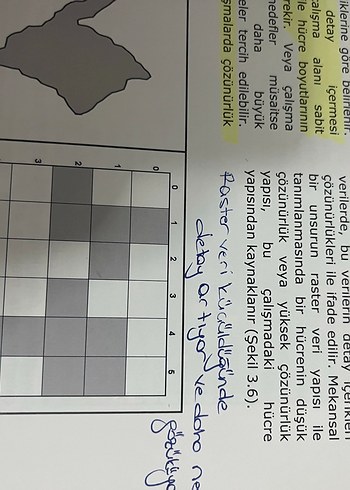 iklerine göre belirlenir.
detay içermesi
çalışma alanı sabit
le hücre boyutlarının
rekir. Veya çalışma
hedefler müsaitse
daha büyük
eler tercih edilebilir.
şmalarda çözünürlük
verilerde, bu verilerin detay içerikleri
çözünürlükleri ile ifade edilir. Mekansal
bir unsurun raster veri yapısı ile
tanımlanmasında bir hücrenin düşük
çözünürlük veya yüksek çözünürlük
yapısı, bu çalışmadaki hücre
yapısından kaynaklanır (Şekil 3.6).
Raster veri küçüldüğünde
detay artıyor ve daha ne
0 1 2 3 4 5
0
1
2
3